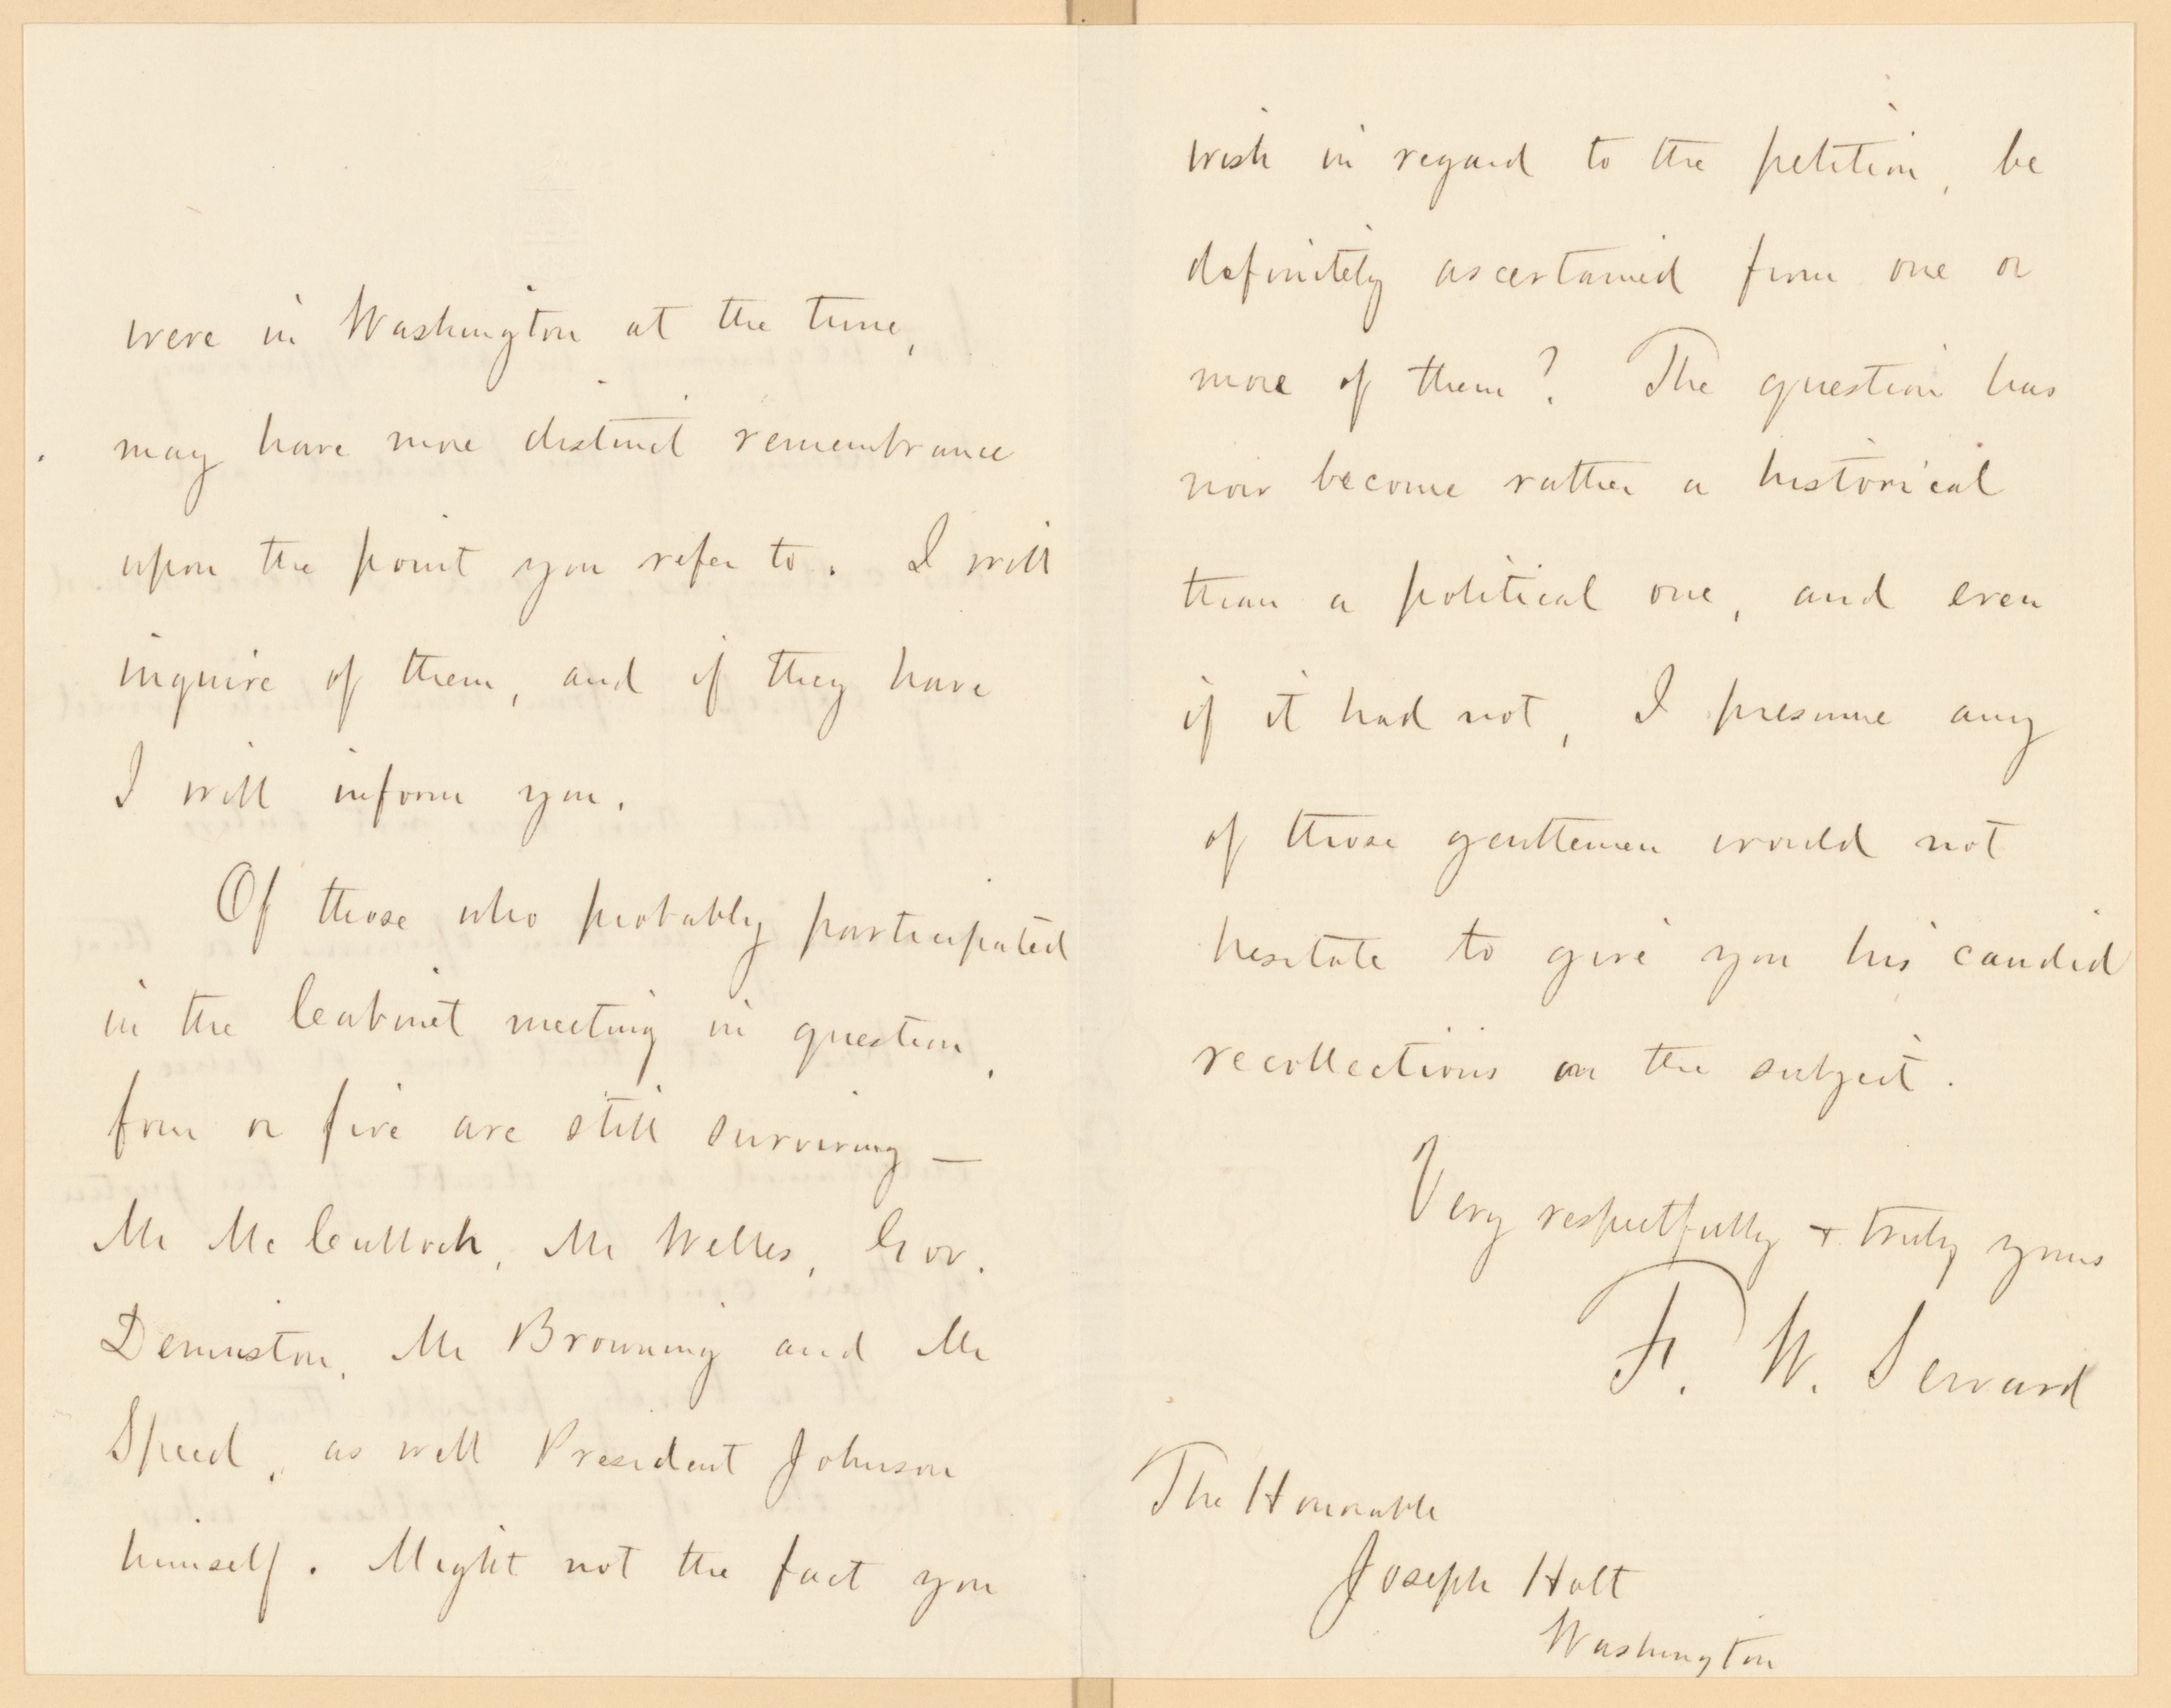 were in Washington at the time,
may have more distinct remembrance
upon the point you refer to. I will
inquire of them, and if they have
I will inform you.
Of those who probably participated
in the Cabinet meeting in question,
four or five are still surviving —
Mr McCulloch, Mr Welles, Gov.
Dennison, Mr Browning and Mr
Speed, as well President Johnson
himself. Might not the fact you
wish in regard to the petition, be
definitely ascertained from one or
more of them? The question has
now become rather a historical
than a political one, and even
if it had not, I presume any
of those gentlemen would not
hesitate to give you his candid
recollections on the subject.
Very respectfully + truly yours
F. W. Seward
The Honorable
Joseph Holt
Washington